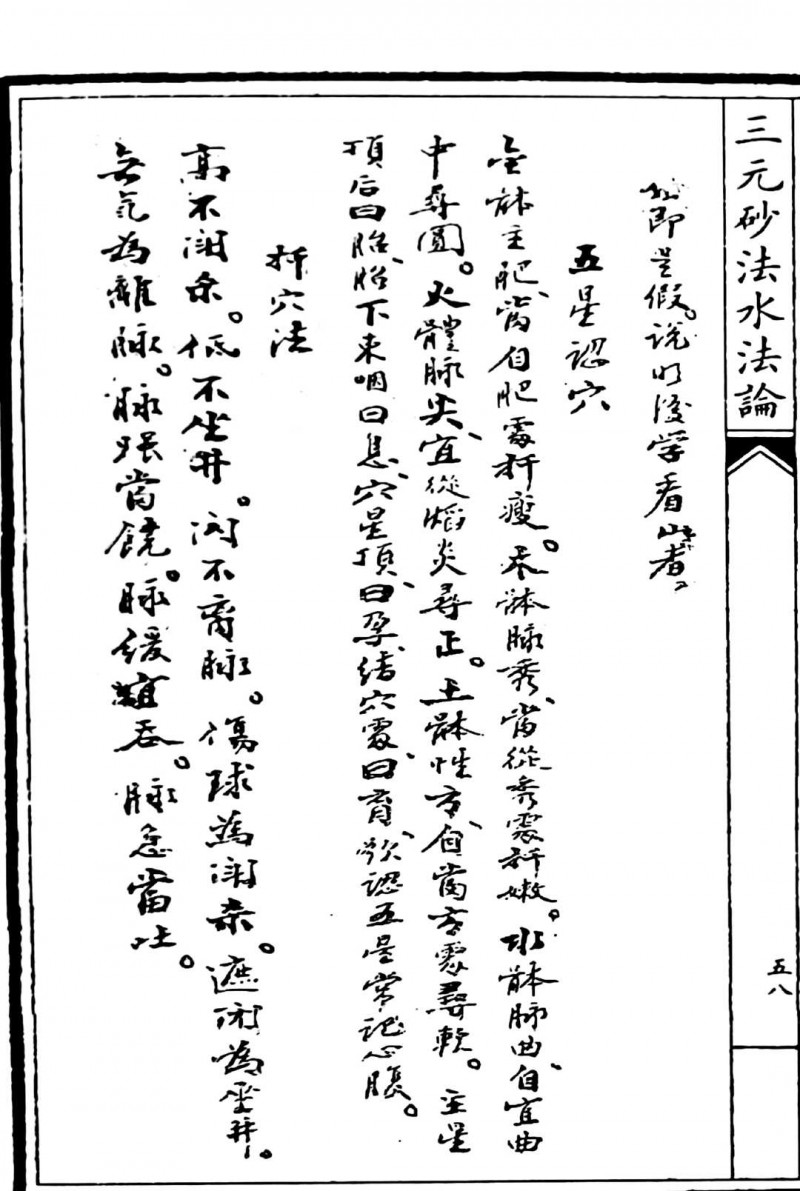 三元砂法水法論
五八
即是假。说明後学看此者。
五星認穴
金体主肥、當自肥處扦瘦。木骵脉秀、當從秀處扦嫩。水骵脉曲、自宜曲
中尋圓。火體脉尖、宜從焰炎尋正。土骵性方、自當方處尋軟。主星
頂后曰胎、胎下束咽曰息、穴星頂、曰孕、结穴處、曰育、欲認五星常记心腹。
扦穴法
高不鬭杀。低不坐井。闪不离脉。傷球為鬭杀。遮闭為坐井。
無氣為離脉。脉强當饒。脉缓宜吞。脉急當吐。